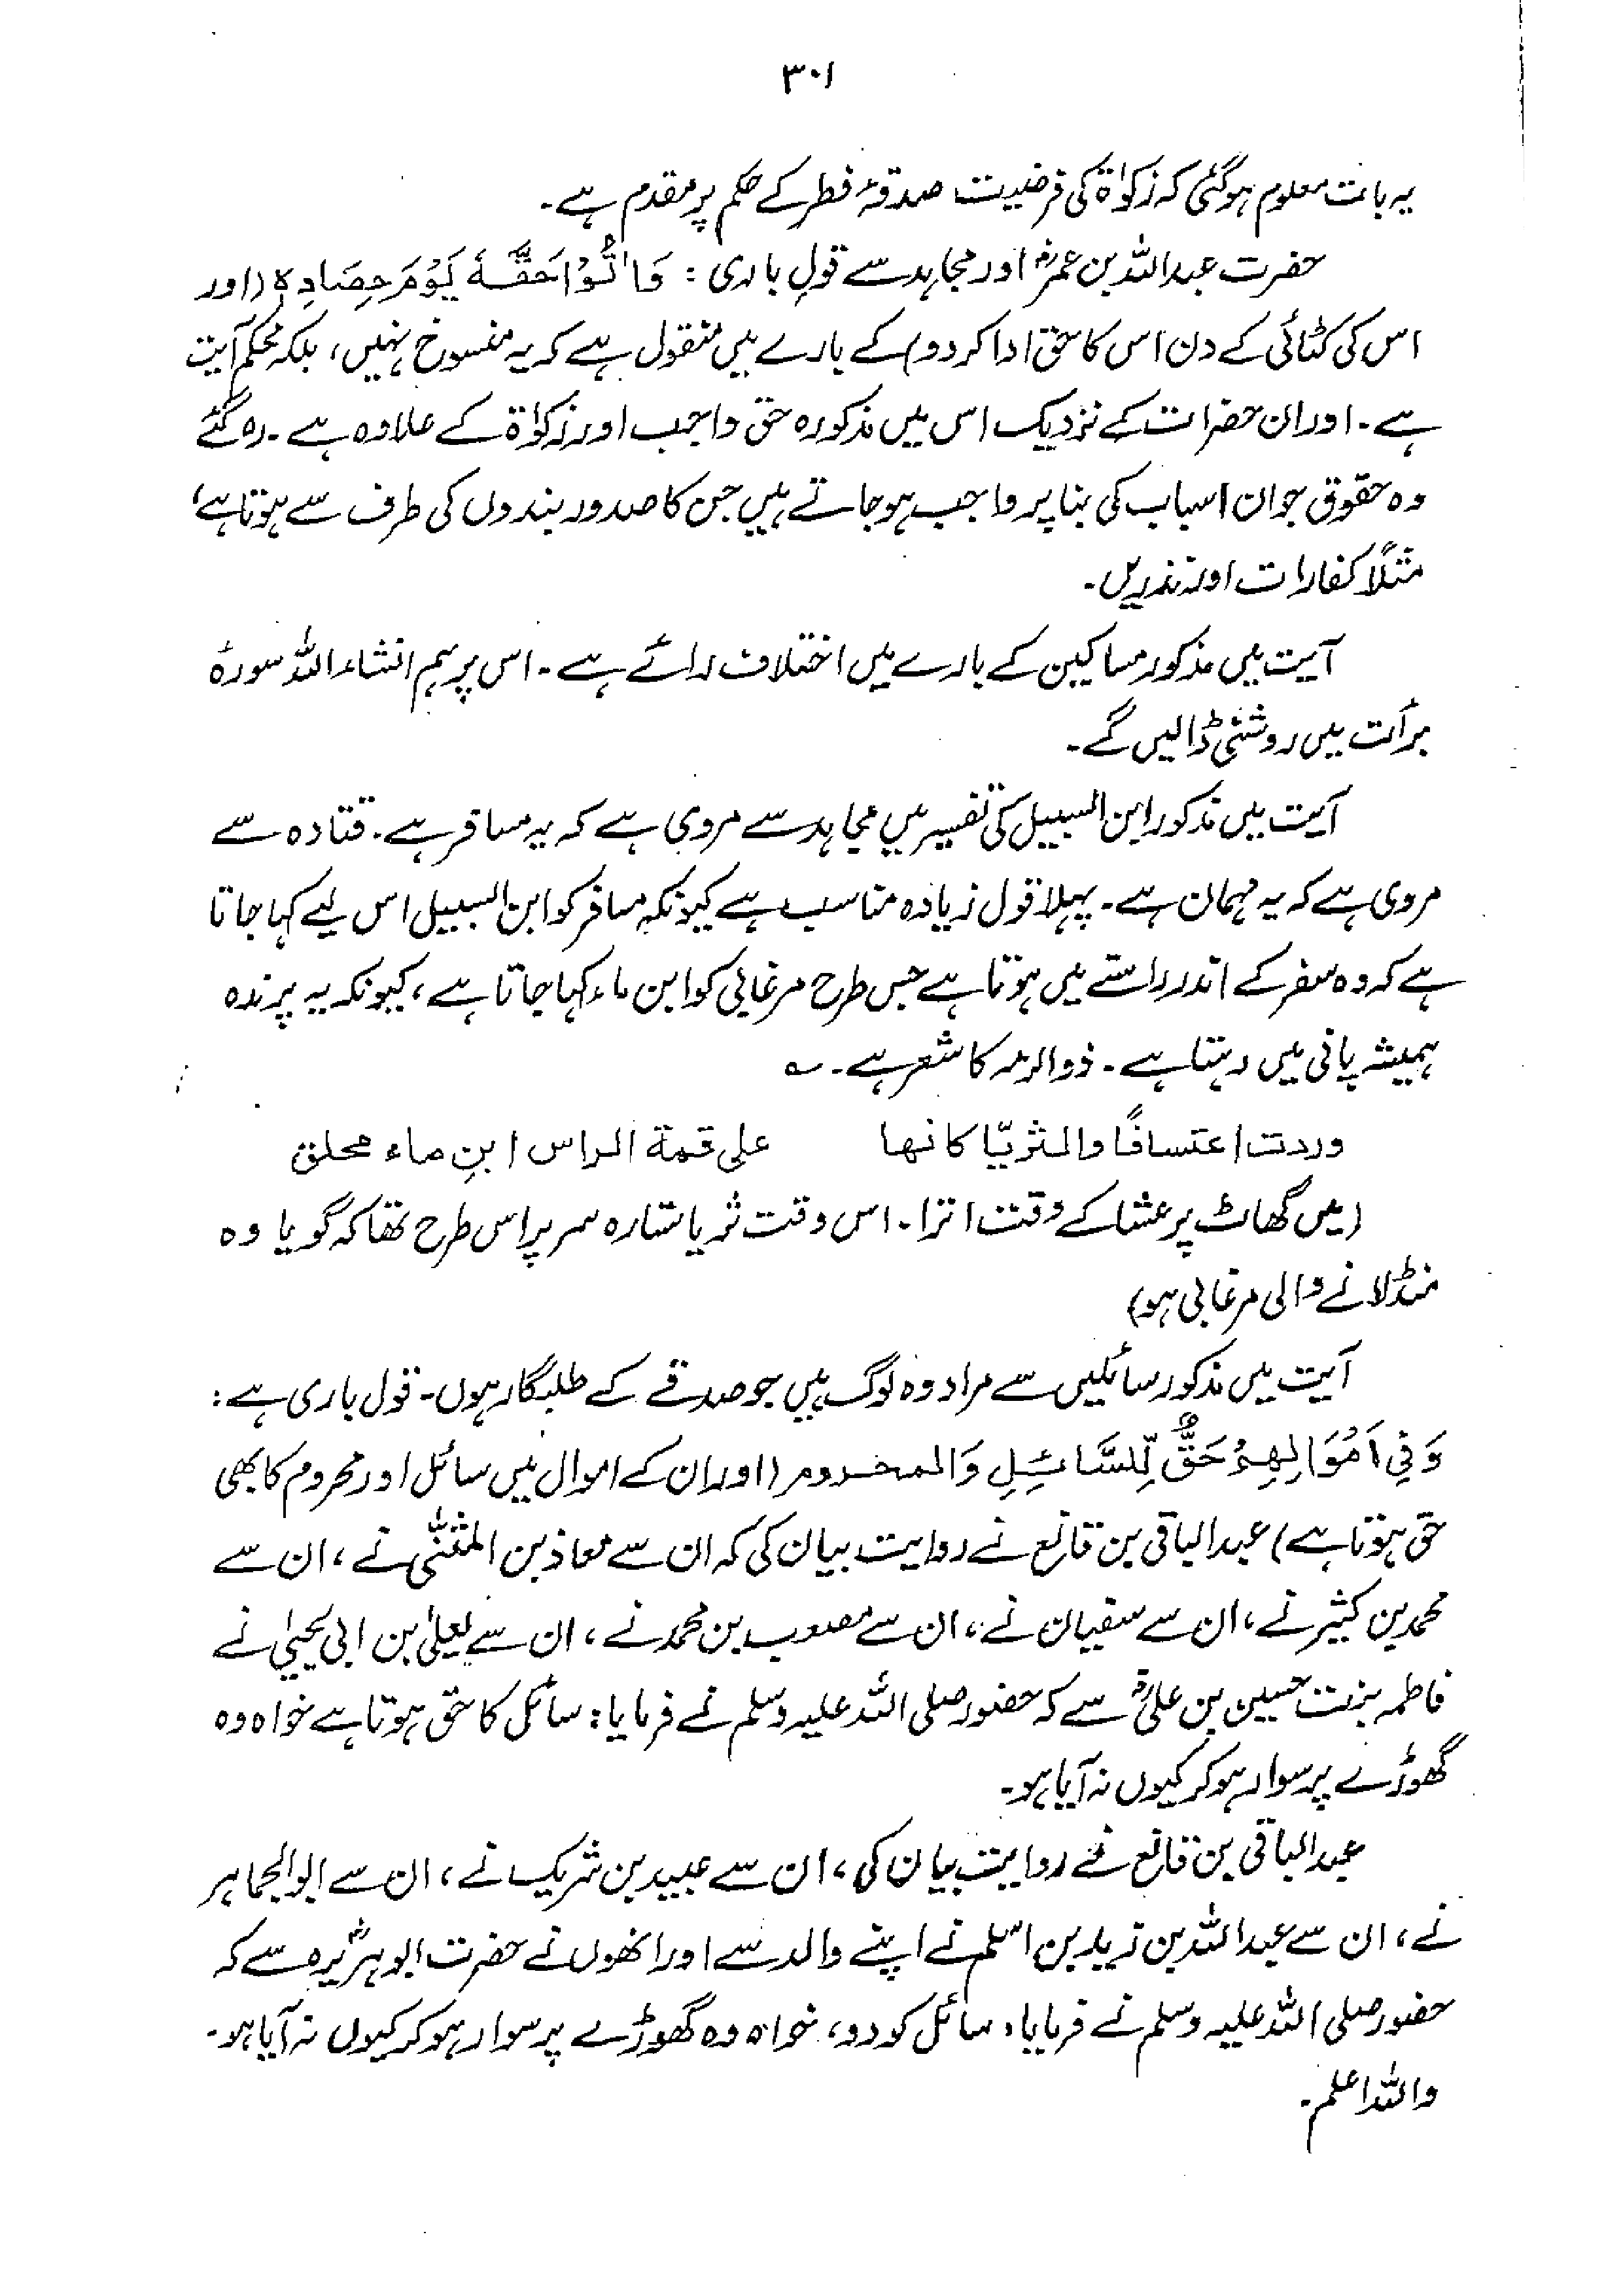 ۳۰۱
یہ بات معلوم ہوگئی کہ زکوٰۃ کی فرضیت صدقۂ فطر کے حکم پر مقدم ہے۔
حضرت عبداللہ بن عمرؓ اور مجاہد سے قولِ باری : وَاٰتُوْا حَقَّہٗ یَوْمَ حِصَادِہٖ (اور
اس کی کٹائی کے دن اس کا حق ادا کر دو) کے بارے میں منقول ہے کہ یہ منسوخ نہیں، بلکہ محکم آیت
ہے۔ اور ان حضرات کے نزدیک اس میں مذکورہ حق واجب اور زکوٰۃ کے علاوہ ہے۔ رہ گئے
وہ حقوق جو ان اسباب کی بنا پر واجب ہو جاتے ہیں جن کا صدور بندوں کی طرف سے ہوتا ہے،
مثلاً کفارات اور نذریں۔
آیت میں مذکور مساکین کے بارے میں اختلاف رائے ہے۔ اس پر ہم انشاء اللہ سورۂ
برأت میں روشنی ڈالیں گے۔
آیت میں مذکور ابن السبیل کی تفسیر میں مجاہد سے مروی ہے کہ یہ مسافر ہے۔ قتادہ سے
مروی ہے کہ یہ مہمان ہے۔ پہلا قول زیادہ مناسب ہے کیونکہ مسافر کو ابن السبیل اس لیے کہا جاتا
ہے کہ وہ سفر کے اندر راستے میں ہوتا ہے جس طرح مرغابی کو ابن ماء کہا جاتا ہے، کیونکہ یہ پرندہ
ہمیشہ پانی میں رہتا ہے۔ ذوالرمہ کا شعر ہے۔ ؎
وردت اعتسافًا والثریّا کانھا علی قمۃ الراس ابنِ ماء محلق
(میں گھاٹ پر عشا کے وقت اترا۔ اس وقت ثریا ستارہ سر پر اس طرح تھا کہ گویا وہ
منڈلانے والی مرغابی ہو)
آیت میں مذکور سائلیں سے مراد وہ لوگ ہیں جو صدقے کے طلبگار ہوں۔ قول باری ہے :
وَفِیْ اَمْوَالِھِمْ حَقٌّ لِّلسَّائِلِ وَالمحروم (اور ان کے اموال میں سائل اور محروم کا بھی
حق ہوتا ہے) عبدالباقی بن قانع نے روایت بیان کی کہ ان سے معاذ بن المثنٰی نے، ان سے
محمد بن کثیر نے، ان سے سفیان نے، ان سے مصعب بن محمد نے، ان سے یعلیٰ بن ابی یحییٰ نے
فاطمہ بنت حسین بن علیؓ سے کہ حضور صلی اللہ علیہ وسلم نے فرمایا: سائل کا حق ہوتا ہے خواہ وہ
گھوڑے پر سوار ہو کر کیوں نہ آیا ہو۔
عبدالباقی بن قانع نے روایت بیان کی، ان سے عبید بن شریک نے، ان سے ابوالجماہر
نے، ان سے عبداللہ بن زید بن اسلم نے اپنے والد سے اور انھوں نے حضرت ابوہریرہؓ سے کہ
حضور صلی اللہ علیہ وسلم نے فرمایا، سائل کو دو، خواہ وہ گھوڑے پر سوار ہو کر کیوں نہ آیا ہو۔
واللہ اعلم۔